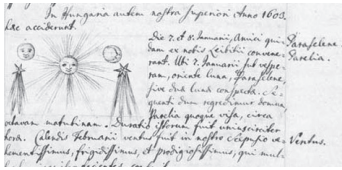 In Hungaria autem nostra superiori Anno 1600.
hæc acciderunt.
Die 7. et 8. Januarii, Amici qui-
dam ex notis convene-
rant. Ubi 7. Januarii sub vespe-
ram, oriente luna, Paraselene,
sive duæ lunæ conspectæ.
quenti dum regrederemur domum,
Parelia quoque visa, circa
octavam matutinam. Duratio istorum fuit unius circiter
hora. Calendis Februarii ventus fuit in nostro Scepusio ve-
hementissimus, frigidissimus, et prodigiosissimus, qui mul-
Paraselene.
Parelia.
Ventus.